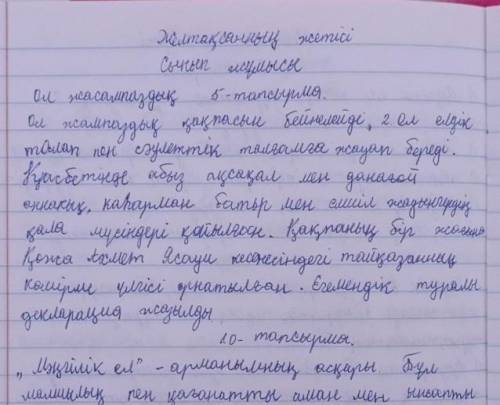 Желтоқсанның жетісі
Сынып жұмысы
Ол жасампаздық 5-тапсырма.
Ол жампаздық қақпасын бейнелейді, 2 ол елдік
талап пен сәулеттік талғамға жауап береді.
абыз ақсақал мен данагөй
каһарман батыр мен
қала мүсіндері қойылған. Қақпаның бір жағына
Қожа Ахмет Ясауи кесенесіндегі тайқазанның
көшірме үлгісі орнатылған. Егемендік туралы
декларация жазылды
10-тапсырма.
„Мәңгілік ел" - арманымның асқары Бұл
пен қағанатты аман мен ынсапты